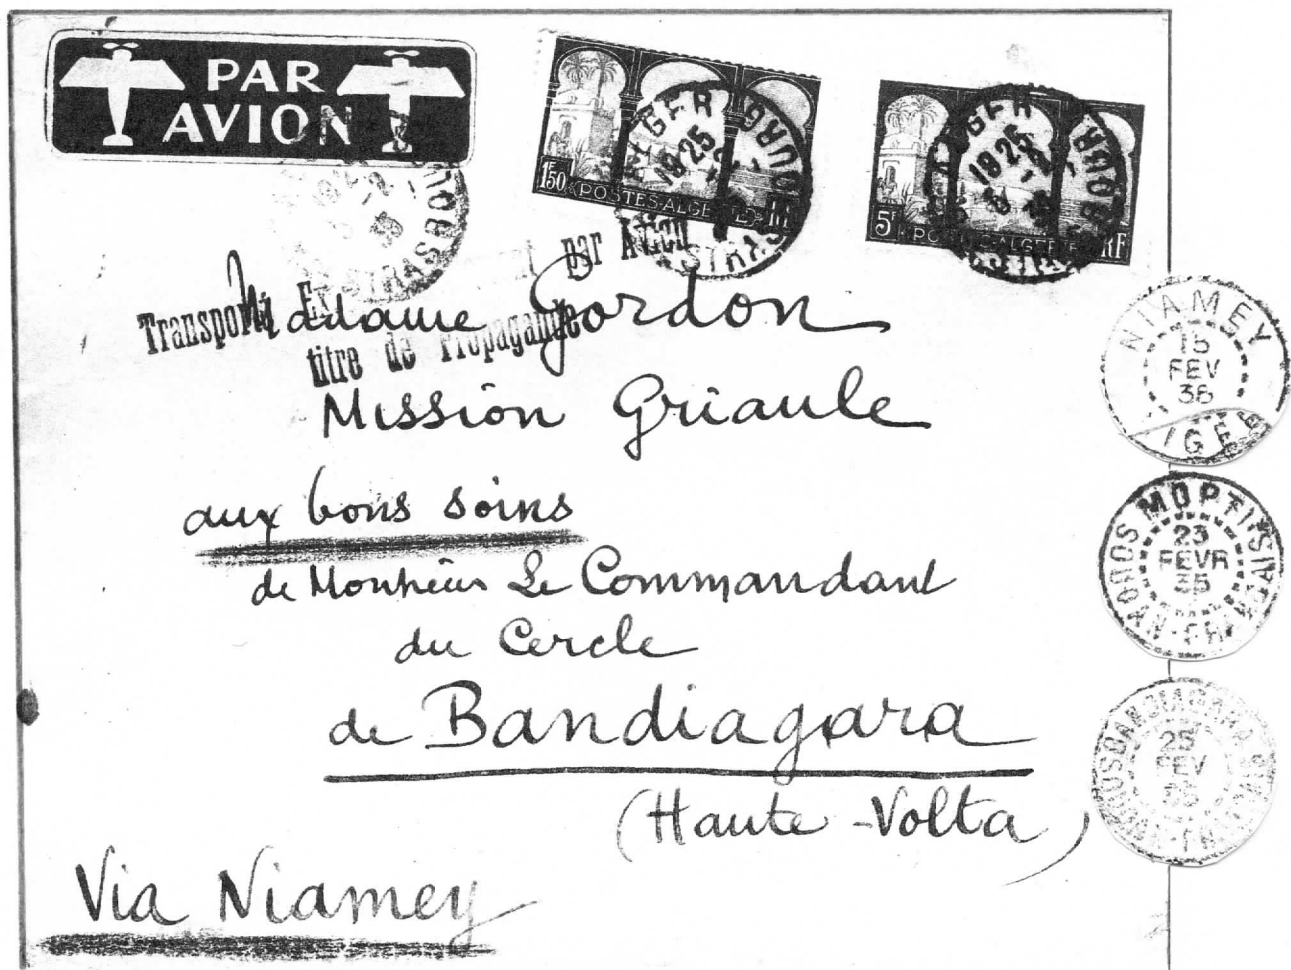 PAR
AVION
1F50
POSTES-ALGERIE
RF
ALGER
STRASBOURG
19 25
5F
POSTES-ALGERIE
RF
ALGER
STRASBOURG
19 25
STRASBOURG
Transporté par Avion
titre de Propagande
Madame Gordon
Mission Griaule
aux bons soins
de Monsieur Le Commandant
du Cercle
de Bandiagara
(Haute-Volta)
Via Niamey
NIAMEY
15
FEV
36
NIGER
MOPTI
23
FEVR
35
SOUDAN FRANÇAIS
BANDIAGARA
25
FEV
35